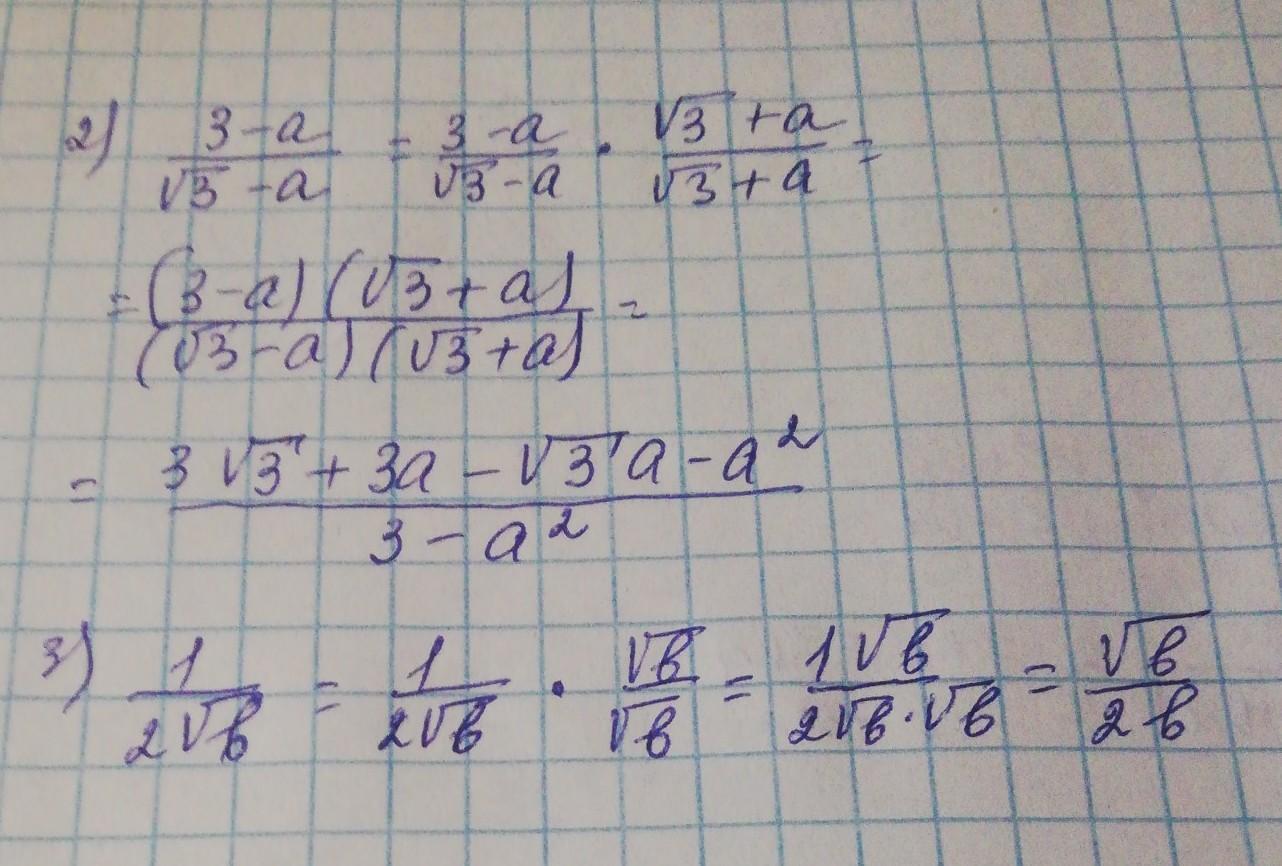 2) (3-a)/(√3-a) = (3-a)/(√3-a) · (√3+a)/(√3+a) =
= ((3-a)(√3+a))/((√3-a)(√3+a)) =
= (3√3+3a-√3a-a²)/(3-a²)
3) 1/(2√в) = 1/(2√в) · √в/√в = (1√в)/(2√в·√в) = √в/(2в)